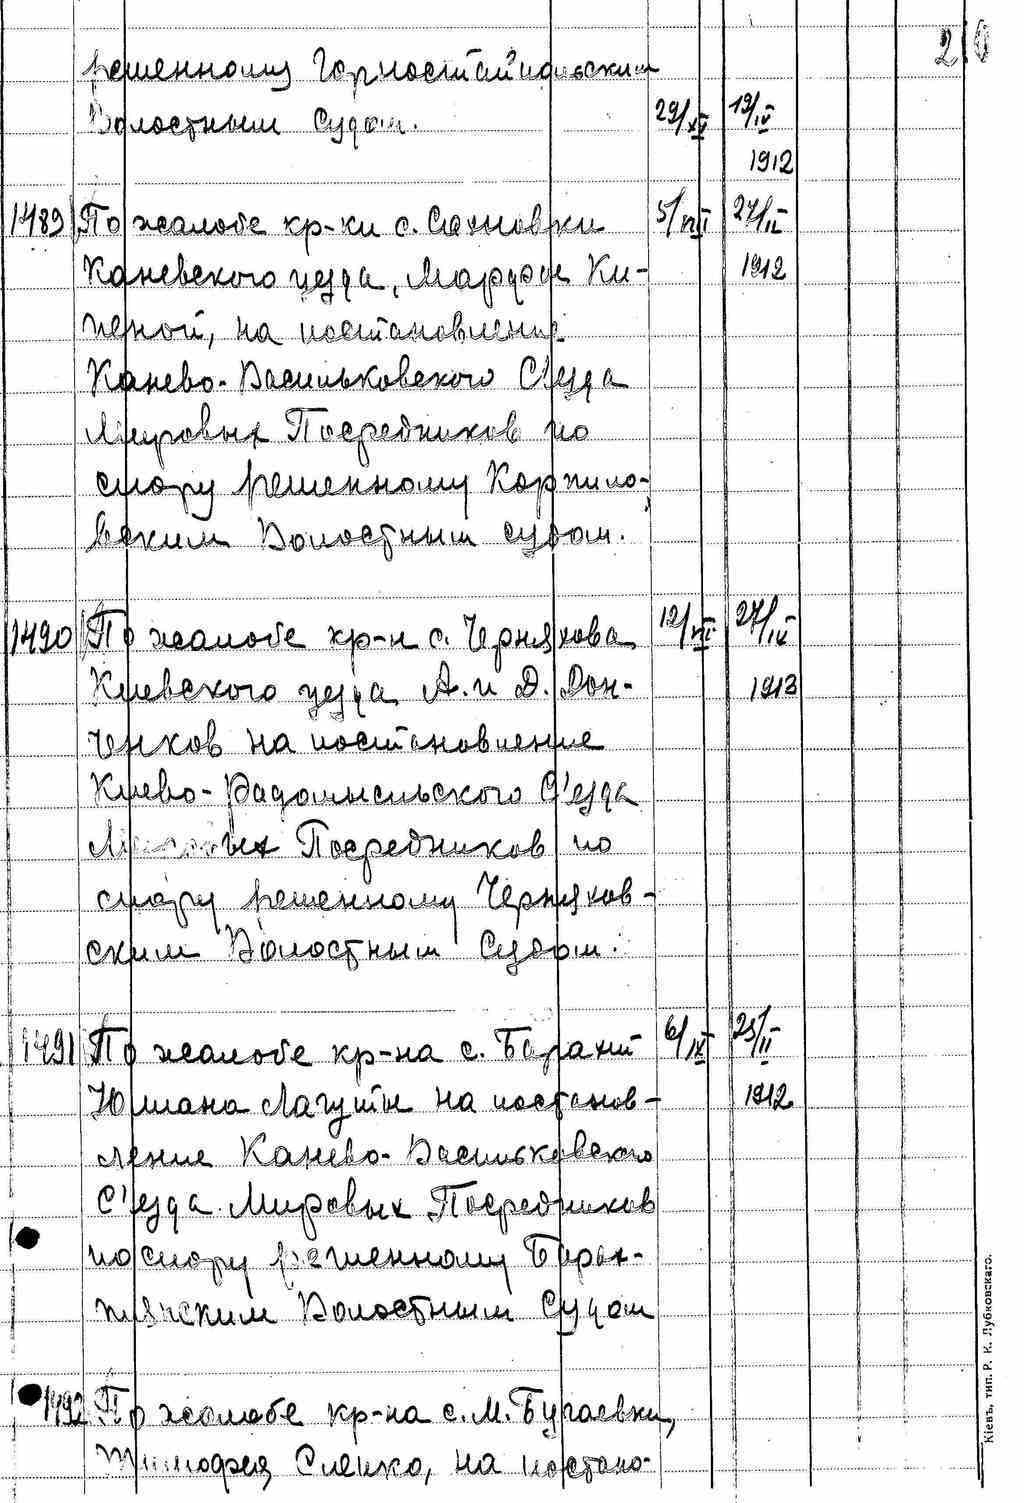 210
решенному Горностайпольским
Волостным Судом. 29/XI 19/IV
1912
1489 По жалобе кр-ки с. Сахновки 5/XII 27/II
Каневского уезда, Марфы Ки- 1912
на постановление
Канево-Васильковского С'езда
Мировых Посредников по
спору решенному Корнило-
вским Волостным судом.
1490 По жалобе кр-н с. Черняхова 12/XII 27/IV
Киевского уезда А. и Д. Дон- 1913
ченков на постановление
Киево-Радомысльского С'езда
Мировых Посредников по
спору решенному Черняхов-
ским Волостным Судом.
1491 По жалобе кр-на с. Барахты 6/IX 25/II
Юлиана Лагуты на постанов- 1912
ление Канево-Васильковского
С'езда Мировых Посредников
по спору решенному Барах-
тянским Волостным Судом
1492 По жалобе кр-на с. М. Бугаевки,
Тимофея Слепко, на постано-
Кіевъ, тип. Р. К. Лубковскаго.